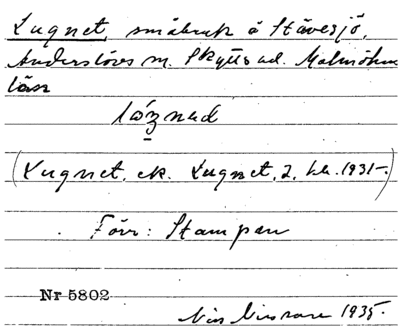 Lugnet, småbruk å Stävesjö,
Anderslövs sn. Skytts hd. Malmöhus
län
(Lugnet, ek. Lugnet, 2, bl. 1931-.)
Förr: Stampen
Nr 5802
Nils 1935.